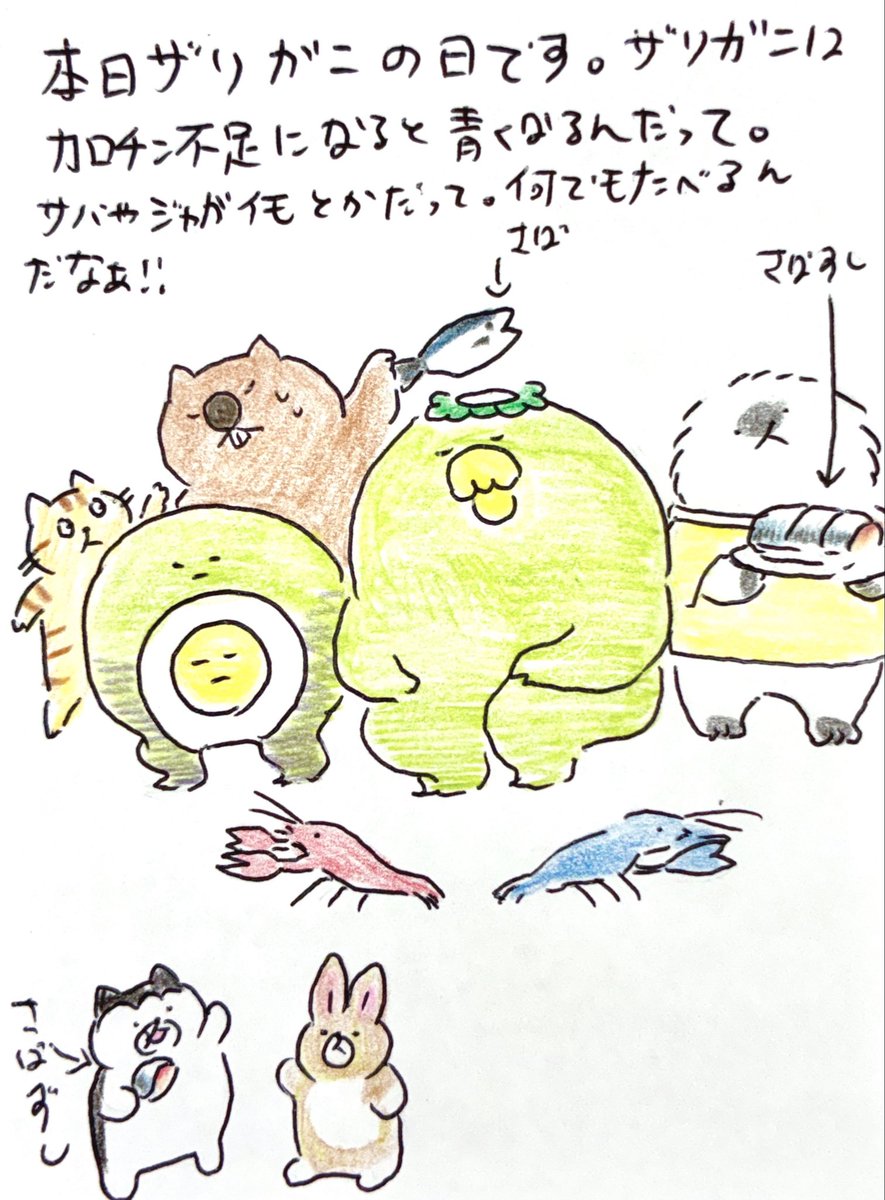 本日ザリガニの日です。ザリガニは
カロチン不足になると青くなるんだって。
サバやジャガイモとかだって。何でもたべるん
だなぁ!!
さば
さばすし
さばずし